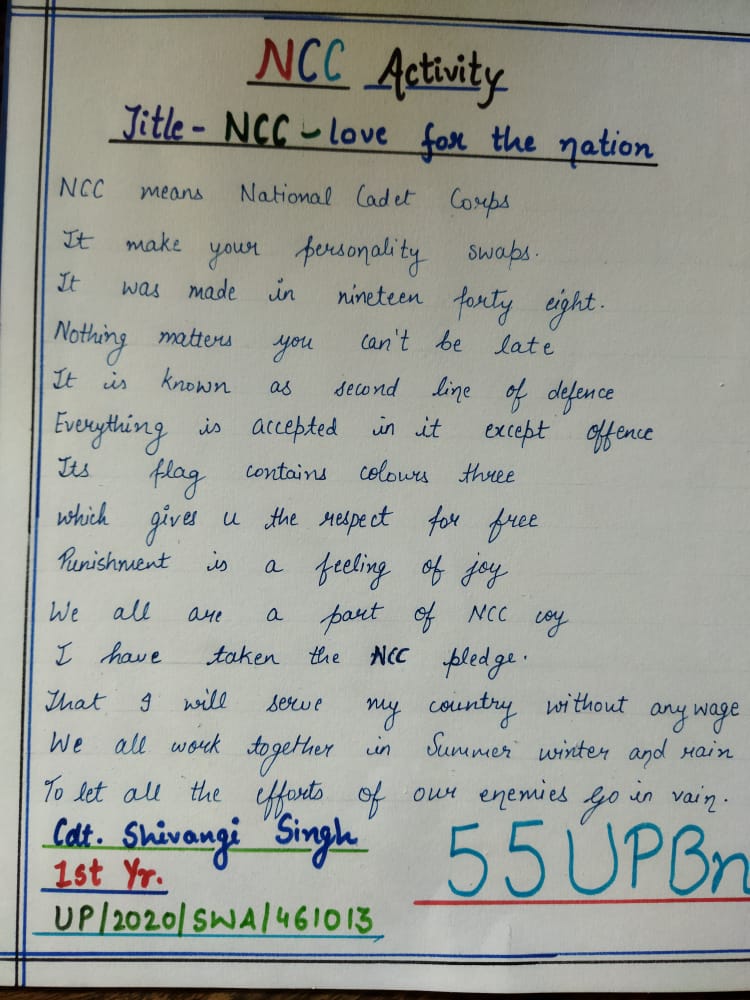 NCC Activity
Title - NCC - love for the nation
NCC means National Cadet Corps
It make your personality swaps.
It was made in nineteen forty eight.
Nothing matters you can't be late
It is known as second line of defence
Everything is accepted in it except offence
Its flag contains colours three
which gives u the respect for free
Punishment is a feeling of joy
We all are a part of NCC coy
I have taken the NCC pledge.
That I will serve my country without any wage
We all work together in Summer winter and rain
To let all the efforts of our enemies go in vain.
Cdt. Shivangi Singh
1st Yr.
UP/2020/SWA/461013
55UPBn